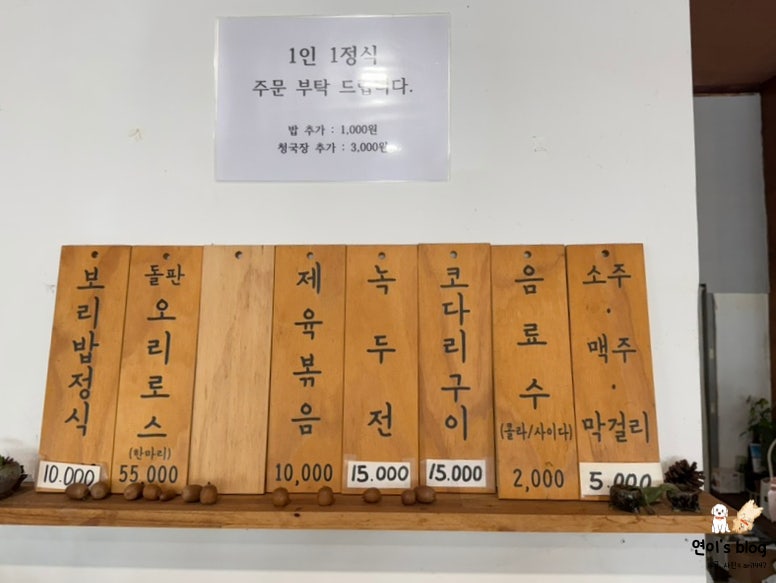 1인 1정식
주문 부탁 드립니다.
밥 추가 : 1,000원
청국장 추가 : 3,000원
보리밥정식
10.000
돌판
오리로스
(한마리)
55.000
제육볶음
10,000
녹두전
15.000
코다리구이
15.000
음료수
(콜라/사이다)
2,000
소주
·
맥주
·
막걸리
5.000
연이's blog